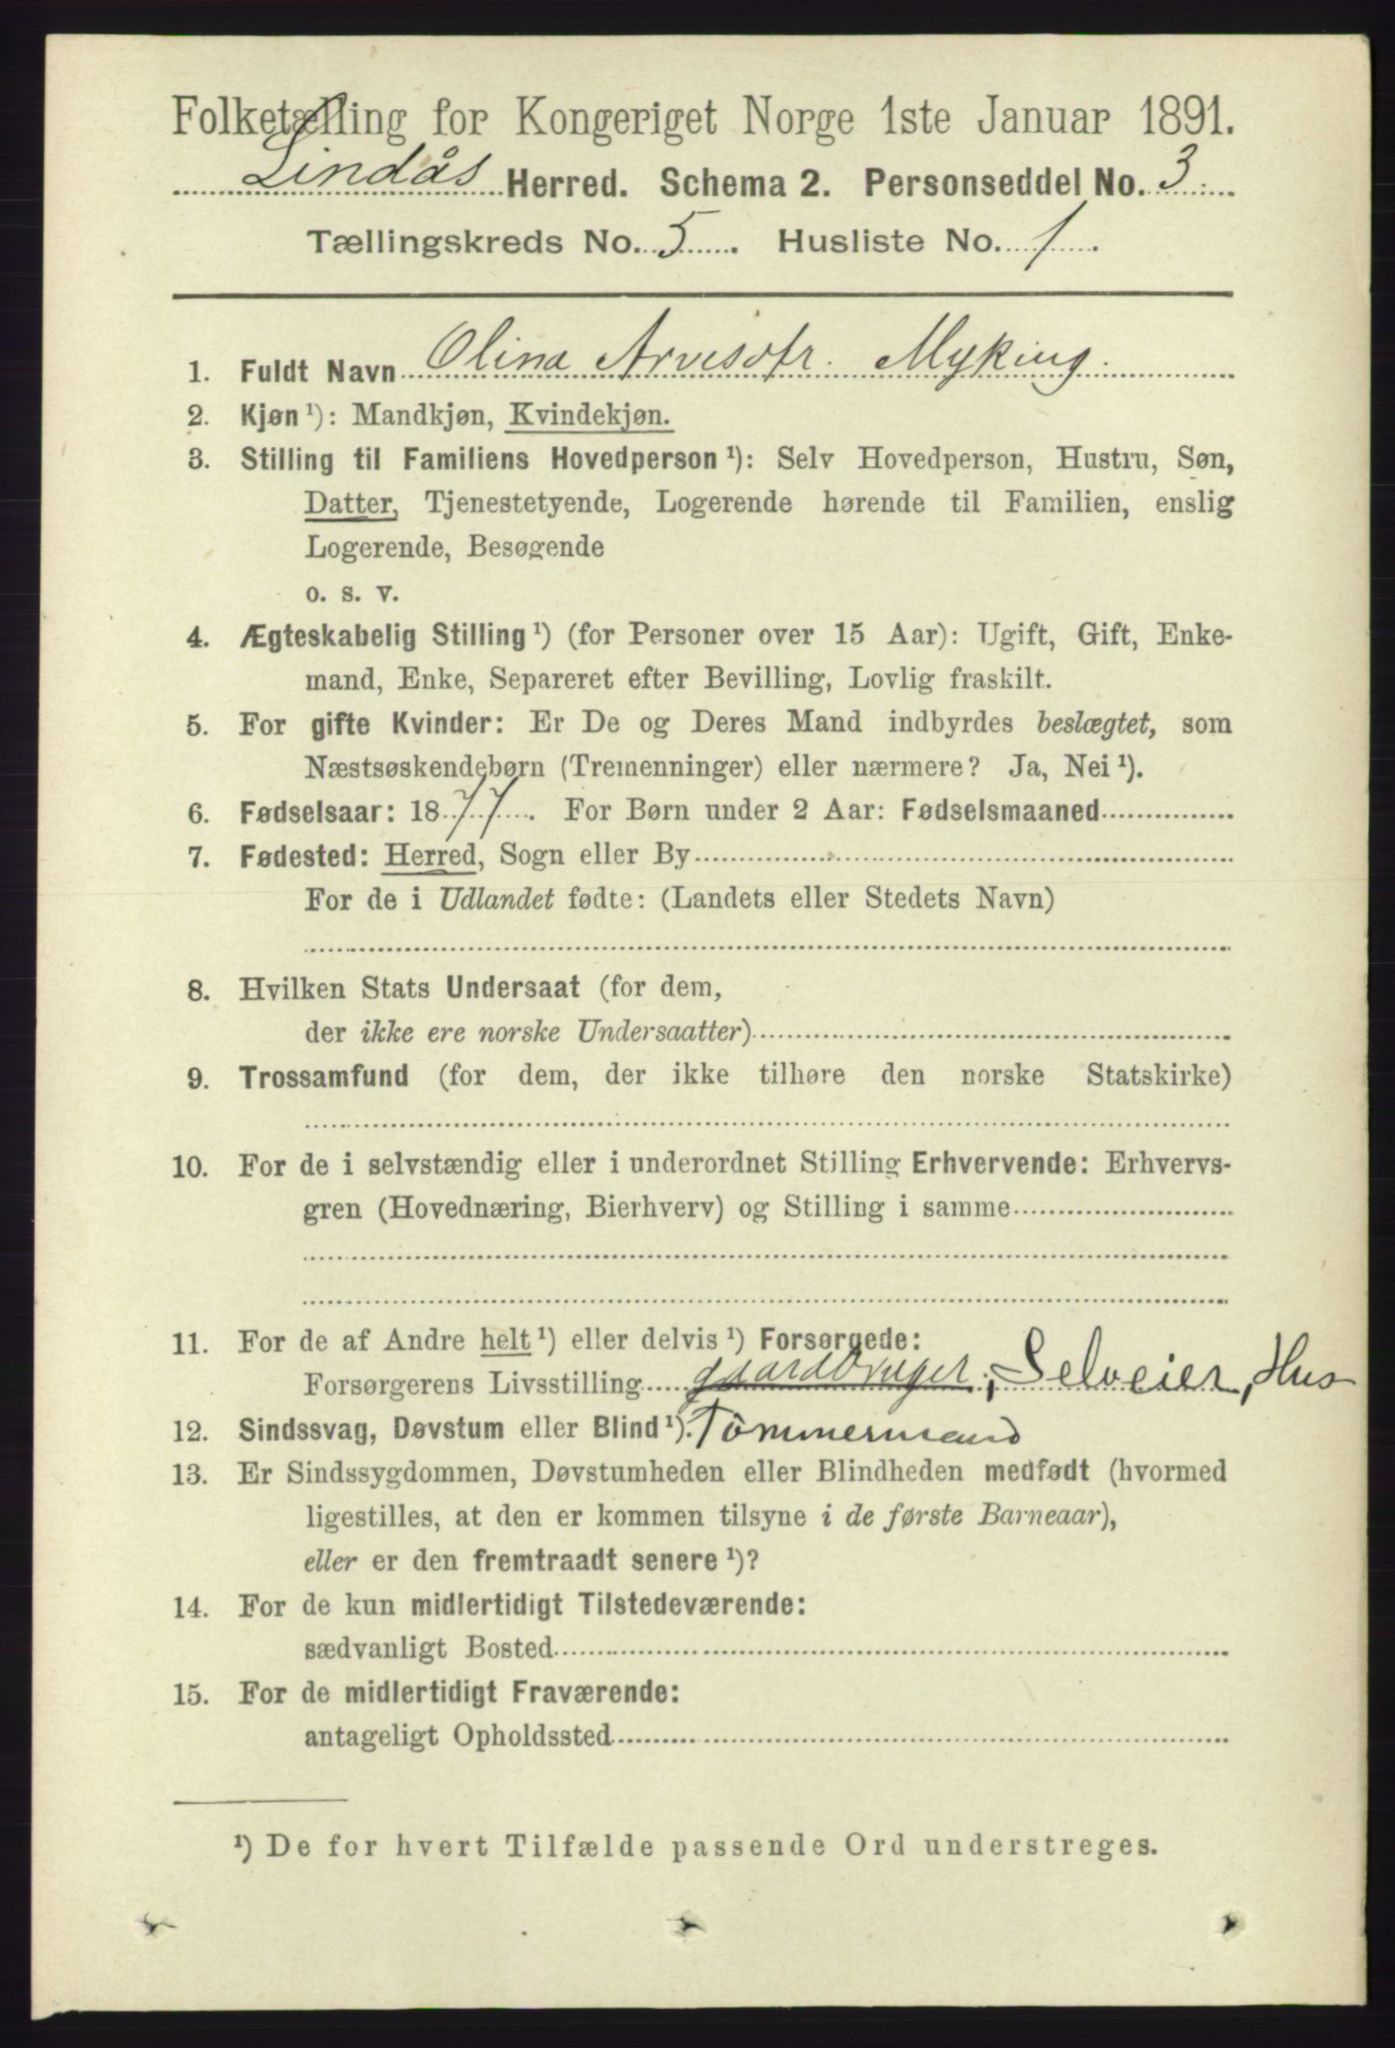 Folketælling for Kongeriget Norge 1ste Januar 1891.
Lindås Herred. Schema 2. Personseddel No. 3.
Tællingskreds No. 5. Husliste No. 1.
1. Fuldt Navn Olina Arvesdtr. Myking.
2. Kjøn ¹): Mandkjøn, Kvindekjøn.
3. Stilling til Familiens Hovedperson ¹): Selv Hovedperson, Hustru, Søn,
Datter, Tjenestetyende, Logerende hørende til Familien, enslig
Logerende, Besøgende
o. s. v.
4. Ægteskabelig Stilling ¹) (for Personer over 15 Aar): Ugift, Gift, Enke-
mand, Enke, Separeret efter Bevilling, Lovlig fraskilt.
5. For gifte Kvinder: Er De og Deres Mand indbyrdes beslægtet, som
Næstsøskendebørn (Tremenninger) eller nærmere? Ja, Nei ¹).
6. Fødselsaar: 1877. For Børn under 2 Aar: Fødselsmaaned
7. Fødested: Herred, Sogn eller By
For de i Udlandet fødte: (Landets eller Stedets Navn)
8. Hvilken Stats Undersaat (for dem,
der ikke ere norske Undersaatter)
9. Trossamfund (for dem, der ikke tilhøre den norske Statskirke)
10. For de i selvstændig eller i underordnet Stilling Erhvervende: Erhvervs-
gren (Hovednæring, Bierhverv) og Stilling i samme
11. For de af Andre helt ¹) eller delvis ¹) Forsørgede:
Forsørgerens Livsstilling gaardbruger, Selveier, Hus
12. Sindssvag, Døvstum eller Blind ¹). Tömmermand
13. Er Sindssygdommen, Døvstumheden eller Blindheden medfødt (hvormed
ligestilles, at den er kommen tilsyne i de første Barneaar),
eller er den fremtraadt senere ¹)?
14. For de kun midlertidigt Tilstedeværende:
sædvanligt Bosted
15. For de midlertidigt Fraværende:
antageligt Opholdssted
¹) De for hvert Tilfælde passende Ord understreges.